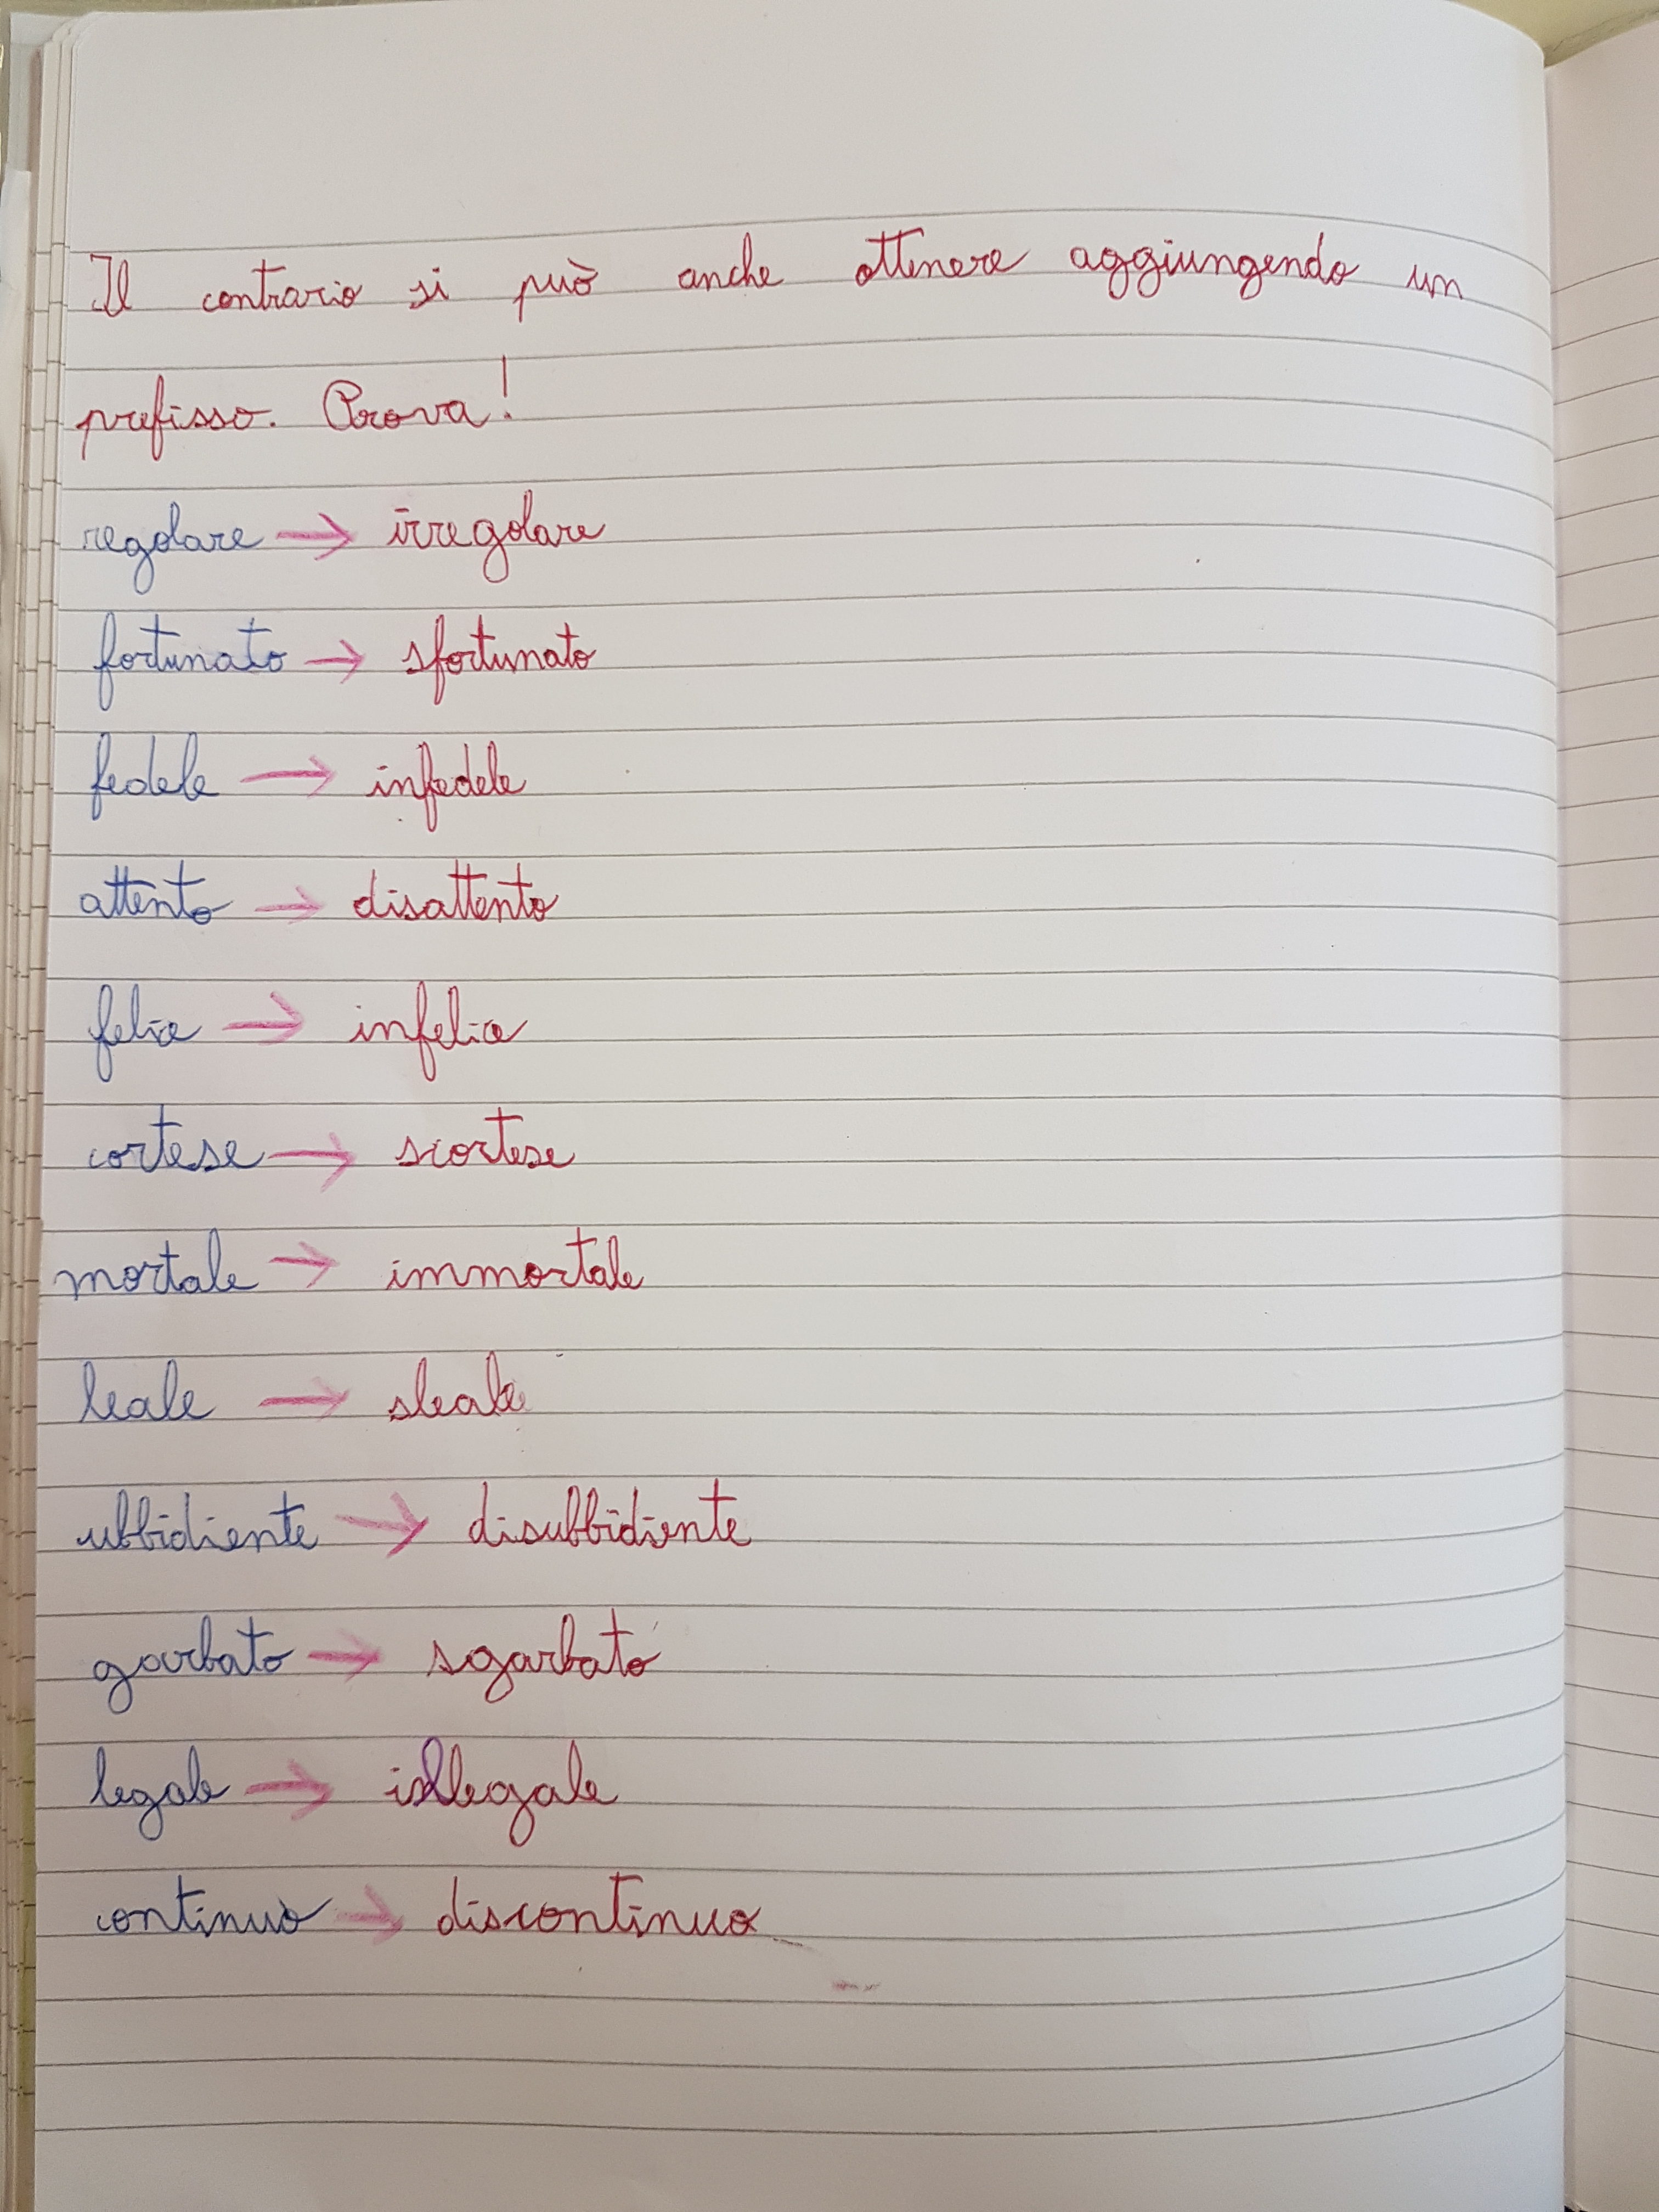 Il contrario si può anche ottenere aggiungendo un
prefisso. Prova!
regolare → irregolare
fortunato → sfortunato
fedele → infedele
attento → disattento
felice → infelice
cortese → scortese
mortale → immortale
leale → sleale
ubbidiente → disubbidiente
garbato → sgarbato
legale → illegale
continuo → discontinuo